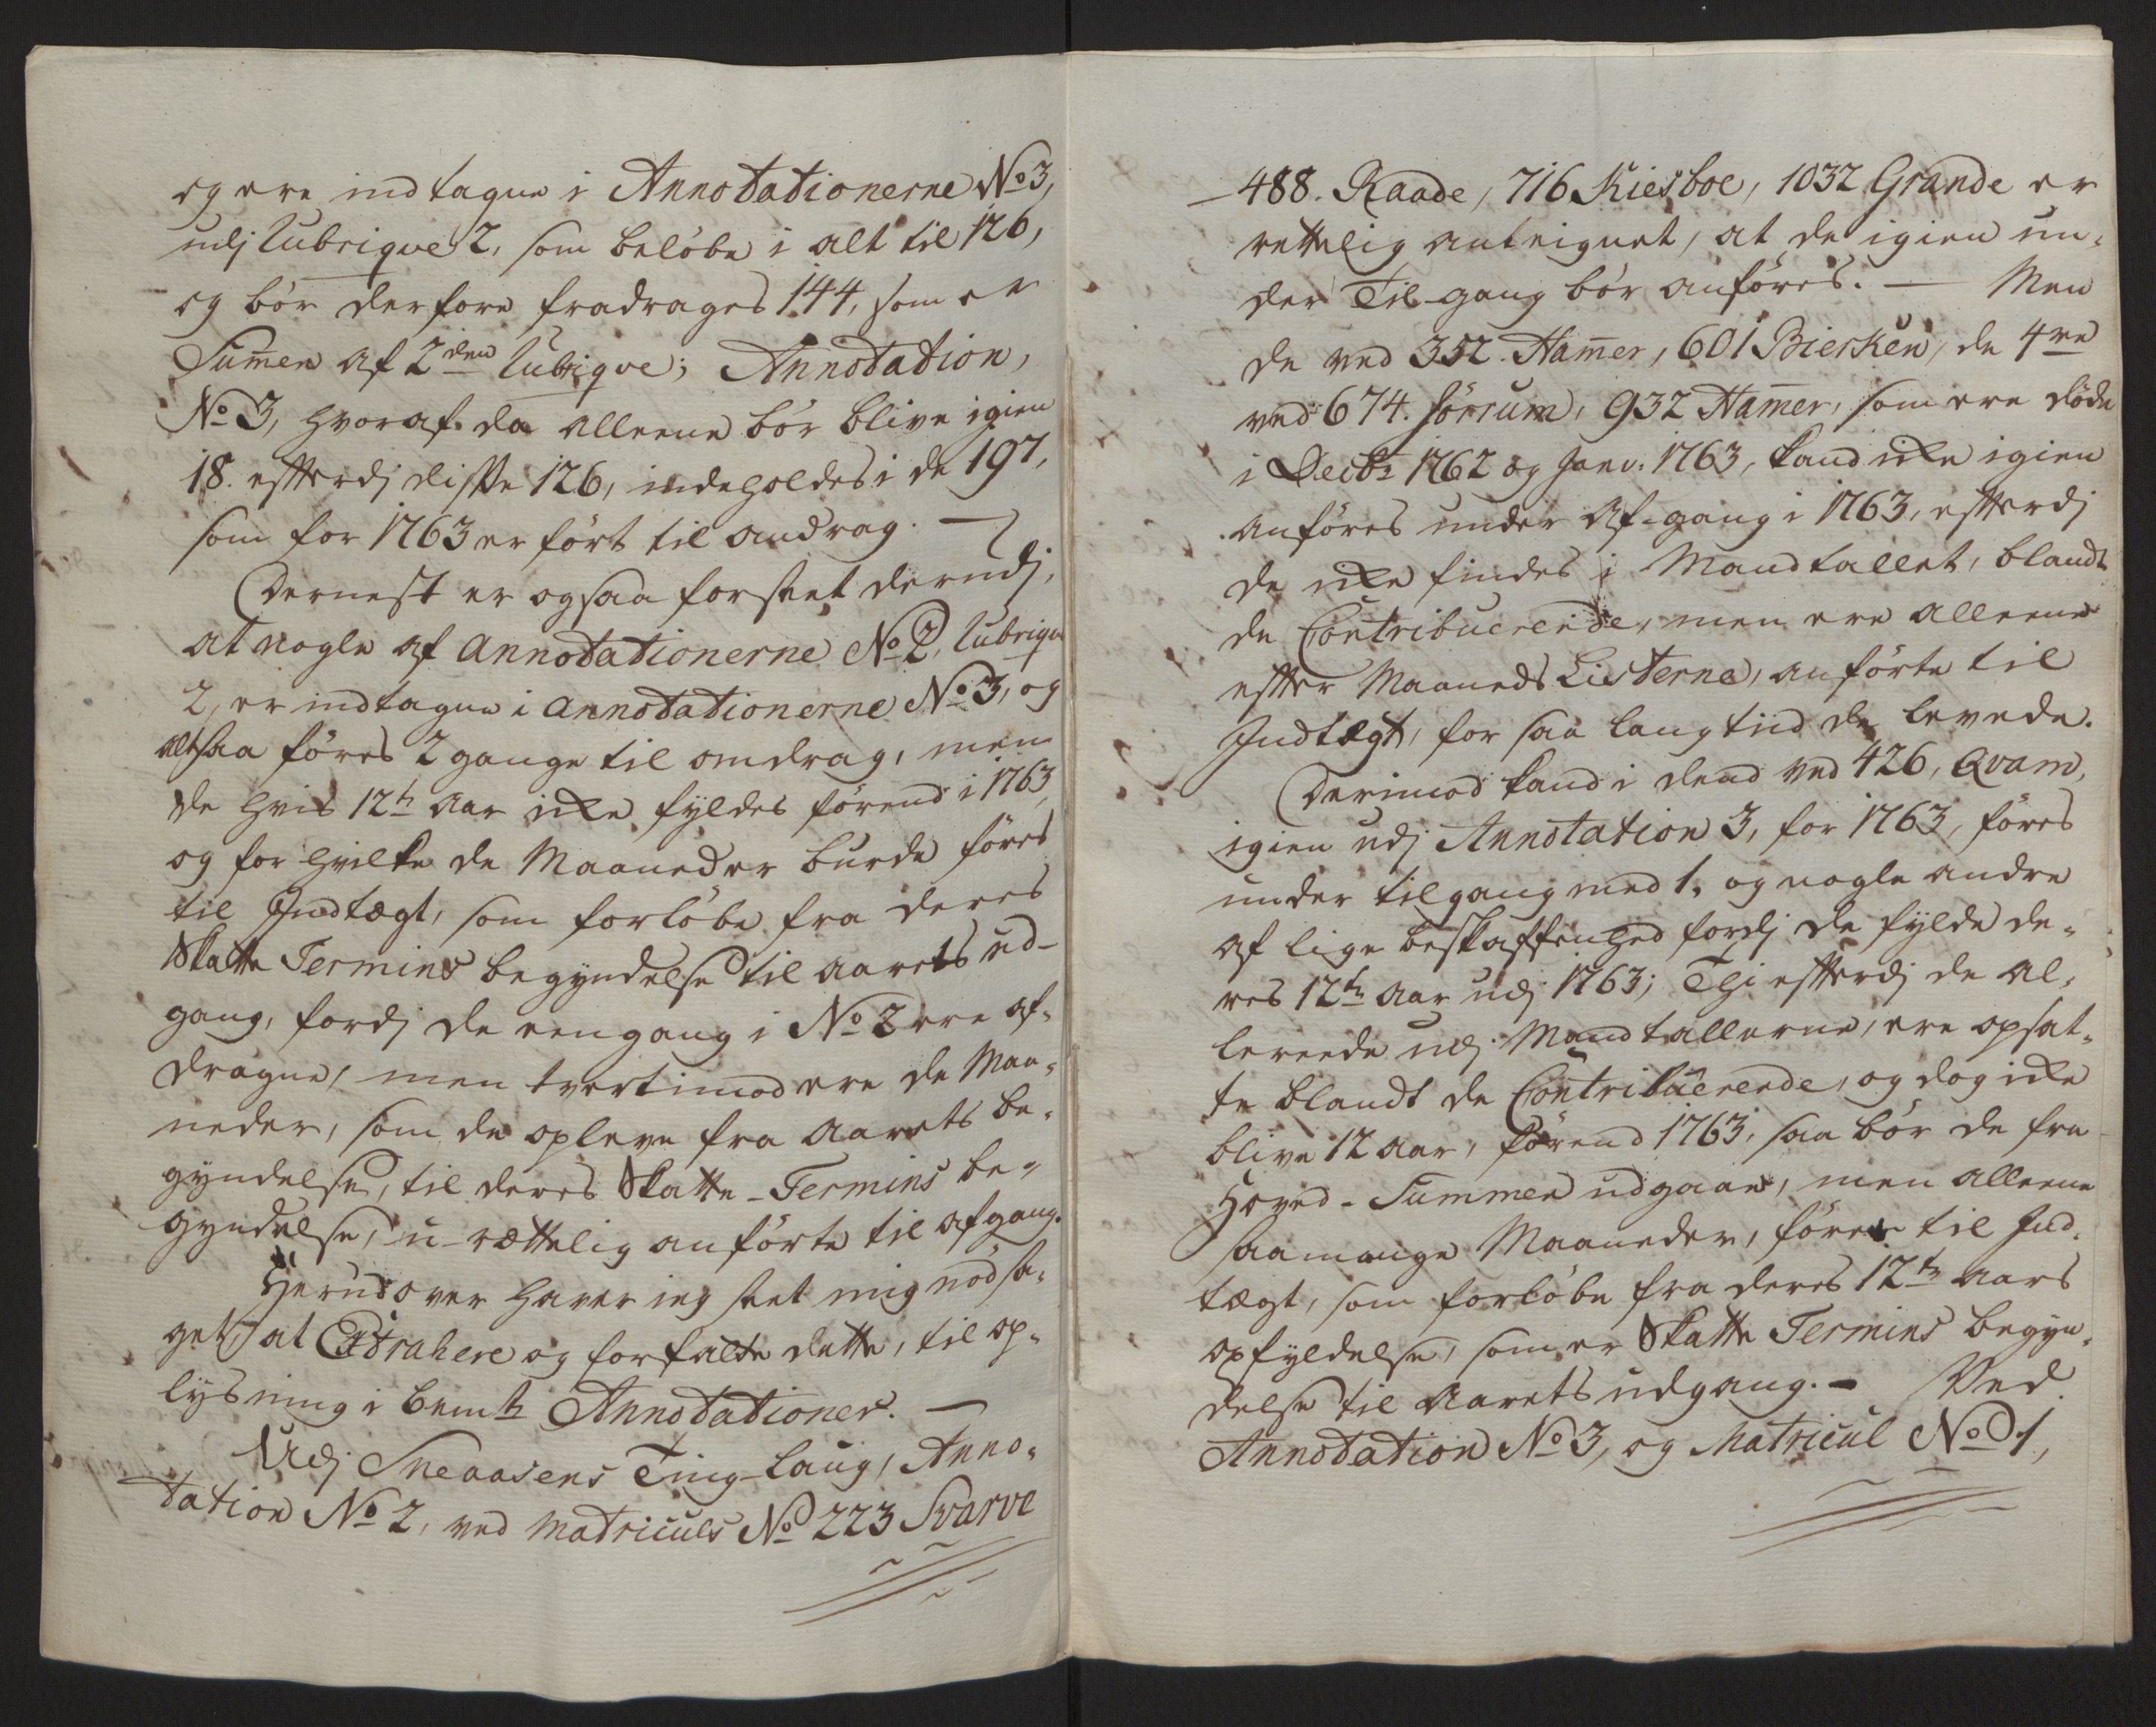 og ere indtagne i Annotationerne No 3,
udj Rubriqve 2, som beløbe i alt til 126,
og bør derfore fradrages 144, som er
Summen af 2den Rubriqve; Annotation,
No 3, hvoraf da alleene bør blive igien
18. efterdj disse 126, indeholdes i de 197,
som for 1763 er ført til andrag. —
Dernest er ogsaa forseet derudj,
at nogle af Annotationerne No 2, Rubriqve
2, er indtagne i Annotationerne No 3, og
altsaa føres 2 gange til omdrag, men
de hvis 12te Aar icke fyldes førend i 1763,
og for hvilke de Maaneder burde føres
til Indtægt, som forløbe fra deres
Skatte Termins begyndelse til Aarets ud-
gang, fordj de eengang i No 2 ere af-
dragne, men tvertimod ere de Maa-
neder, som de opleve fra Aarets be-
gyndelse, til deres Skatte-Termins be-
gyndelse, u-rættelig anførte til afgang.
Herudover haver ieg seet mig nødsa-
get, at Extrahere og forfatte dette, til op-
lysning i bemte Annotationer. —
Udj Sneaasens Ting-Laug, Anno-
tation No 2, ved Matriculs No 223 Svarve
488. Raade, 716 Kiesboe, 1032 Grande er
rettelig anteignet, at de igien un-
der Til-gang bør anføres. — Men
de ved 352. Hamer, 601 Bierken, de 4re
ved 674. Sørrum, 932 Hamer, som ere døde
i Decbr 1762 og Janv: 1763, kand icke igien
anføres under Af-gang i 1763, efterdj
de icke findes i Mandtallet, blandt
de Contribuerende, men ere alleene
efter Maaneds Listerne, anførte til
Indtægt, for saa lang tid de levede.
Derimod kand i dend ved 426, Qvam,
igien udj Annotation 3, for 1763, føres
under tilgang med 1, og nogle andre
af lige beskaffenhed fordj de fylde de-
res 12te Aar udj 1763; Thi efterdj de al-
lereede udj Mandtallerne, ere opsat-
te blandt de Contribuerende, og dog icke
blive 12 Aar, førend 1763, saa bør de fra
Hoved-Summen udgaae, men alleene
saamange Maaneder, føres til Ind-
tægt, som forløbe fra deres 12te Aars
opfyldelse, som er Skatte Termins begyn-
delse til Aarets udgang. — Ved
Annotation No 3, og Matricul No 1,